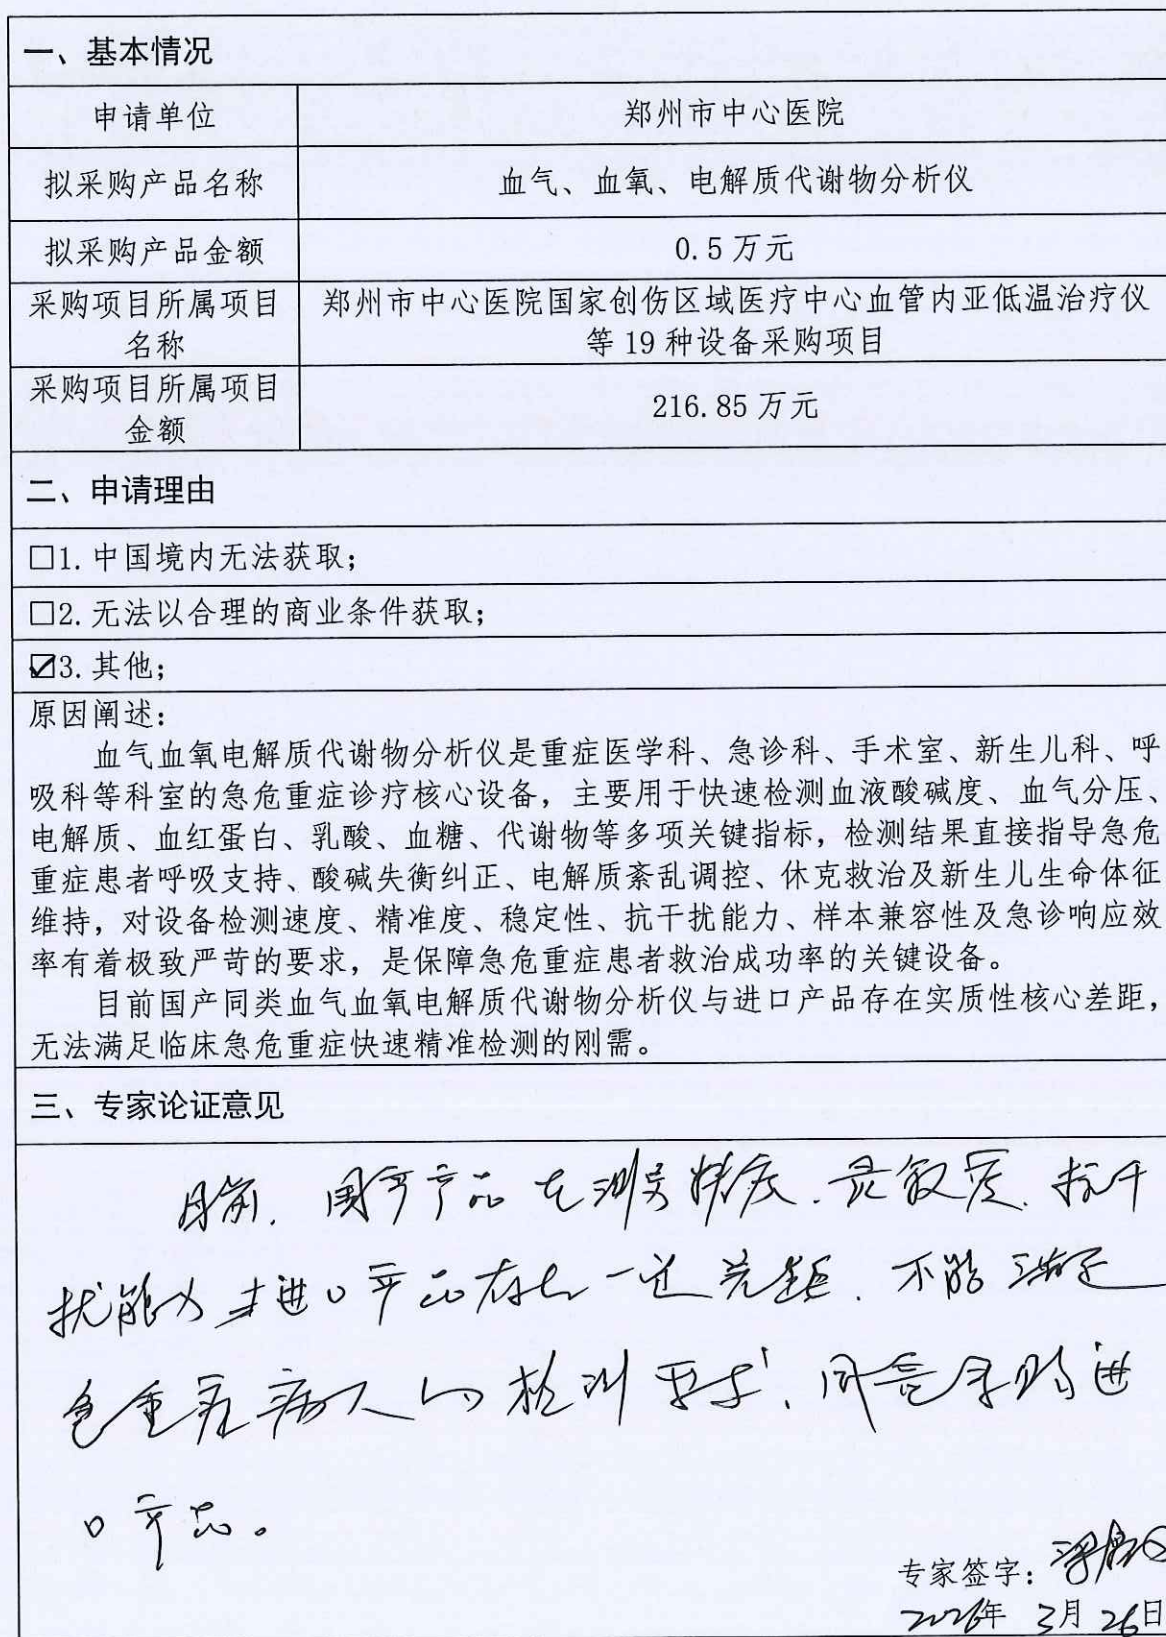 一、基本情况
申请单位 郑州市中心医院
拟采购产品名称 血气、血氧、电解质代谢物分析仪
拟采购产品金额 0.5万元
采购项目所属项目名称 郑州市中心医院国家创伤区域医疗中心血管内亚低温治疗仪
等19种设备采购项目
采购项目所属项目金额 216.85万元
二、申请理由
☐1.中国境内无法获取；
☐2.无法以合理的商业条件获取；
☑3.其他；
原因阐述：
血气血氧电解质代谢物分析仪是重症医学科、急诊科、手术室、新生儿科、呼
吸科等科室的急危重症诊疗核心设备，主要用于快速检测血液酸碱度、血气分压、
电解质、血红蛋白、乳酸、血糖、代谢物等多项关键指标，检测结果直接指导急危
重症患者呼吸支持、酸碱失衡纠正、电解质紊乱调控、休克救治及新生儿生命体征
维持，对设备检测速度、精准度、稳定性、抗干扰能力、样本兼容性及急诊响应效
率有着极致严苛的要求，是保障急危重症患者救治成功率的关键设备。
目前国产同类血气血氧电解质代谢物分析仪与进口产品存在实质性核心差距，
无法满足临床急危重症快速精准检测的刚需。
三、专家论证意见
目前，国产产品在测量精度、灵敏度、抗干
扰能力与进口产品存在一定差距，不能满足
危重症病人的检测要求，同意采购进
口产品。
专家签字：
2026年 3月 26日